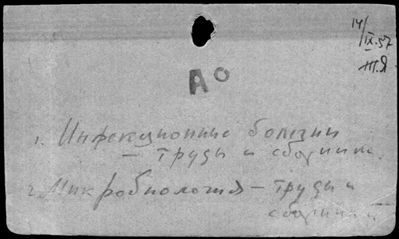 14/IX.57
Ж.Я
А0
1. Инфекционные болезни
— труды и сборники.
2. Микробиология — труды и
сборники